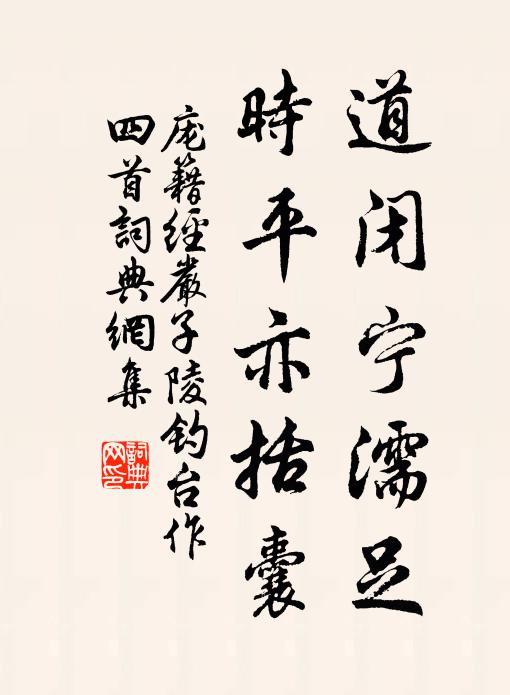 道闭宁濡足
時平亦括囊
庞籍經嚴子陵釣台作
四首詞典網集
詞典
网印